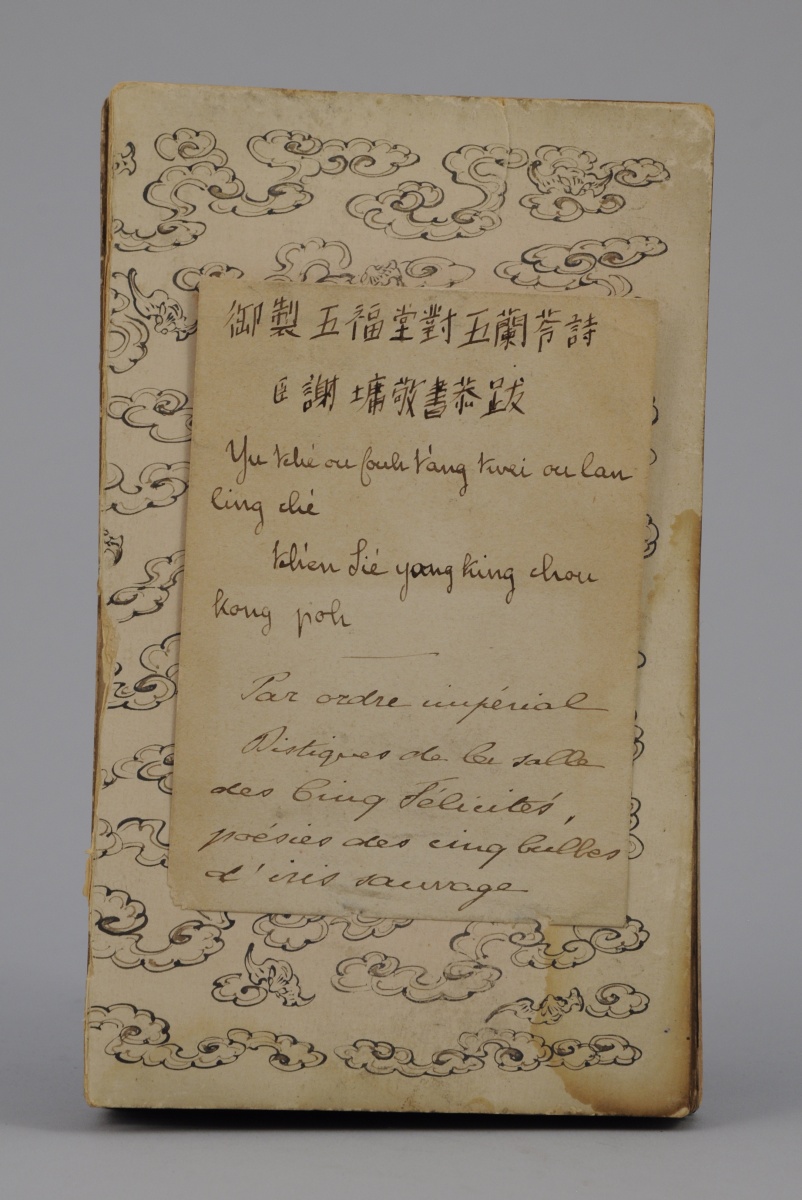 御製五福堂對五蘭苓詩
臣謝墉敬書恭跋
Yu tché ou fouh t'áng twei ou lan
ling ché
tchén Sié yong king chou
kong poh
Par ordre impérial
Distiques de la salle
des Cinq Félicités,
poésies des cinq bulles
d'iris sauvage